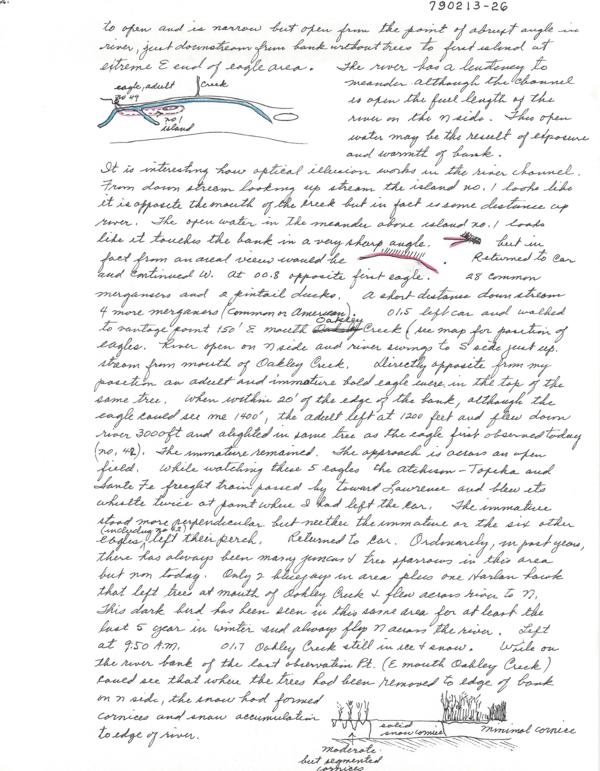 790213-26
to open and is narrow but open from the point of abrupt angle in
river, just downstream from bank without trees to first island at
extreme E end of eagle area. The river has a tendency to
eagle, adult
no 49
Creek
no. 1
island
meander although the channel
is open the full length of the
river on the N side. This open
water may be the result of exposure
and warmth of bank.
It is interesting how optical illusion works in the river channel.
From down stream looking up stream the island no. 1 looks like
it is opposite the mouth of the creek but in fact is some distance up
river. The open water in the meander above island no. 1 looks
like it touches the bank in a very sharp angle. but in
fact from an areal view would be . Returned to car
and continued W. At 00.8 opposite first eagle. 28 common
mergansers and 2 pintail ducks. A short distance down stream
4 more mergansers (Common or American). 01.5 left car and walked
to vantage point 150' E mouth Oakley Creek (see map for position of
eagles. River open on N side and river swings to S side just up.
stream from mouth of Oakley Creek. Directly opposite from my
position an adult and immature bald eagle were in the top of the
same tree. When within 20' of the edge of the bank, although the
eagle could see me 1400', the adult left at 1200 feet and flew down
river 3000ft and alighted in same tree as the eagle first observed today
(no. 42). The immature remained. The approach is across an open
field. While watching these 5 eagles the Atcheson-Topeka and
Sante Fe freight train passed by toward Lawrence and blew its
whistle twice at point where I had left the car. The immature
stood more perpendicular but neither the immature or the six other
eagles (including no 42) left their perch. Returned to car. Ordinarily, in past years,
there has always been many juncos & tree sparrows in this area
but non today. Only 2 bluejays in area plus one Harlan hawk
that left trees at mouth of Oakley Creek & flew across river to N.
This dark bird has been seen in this same area for at least the
last 5 year in winter and always fly N across the river. Left
at 9:50 A.M. 01.7 Oakley Creek still in ice & snow. While on
the river bank of the last observation Pt. (E mouth Oakley Creek)
could see that where the trees had been removed to edge of bank
on N side, the snow had formed
cornices and snow accumulation
to edge of river.
solid
snow cornice
minimal cornice
moderate
but segmented
cornices